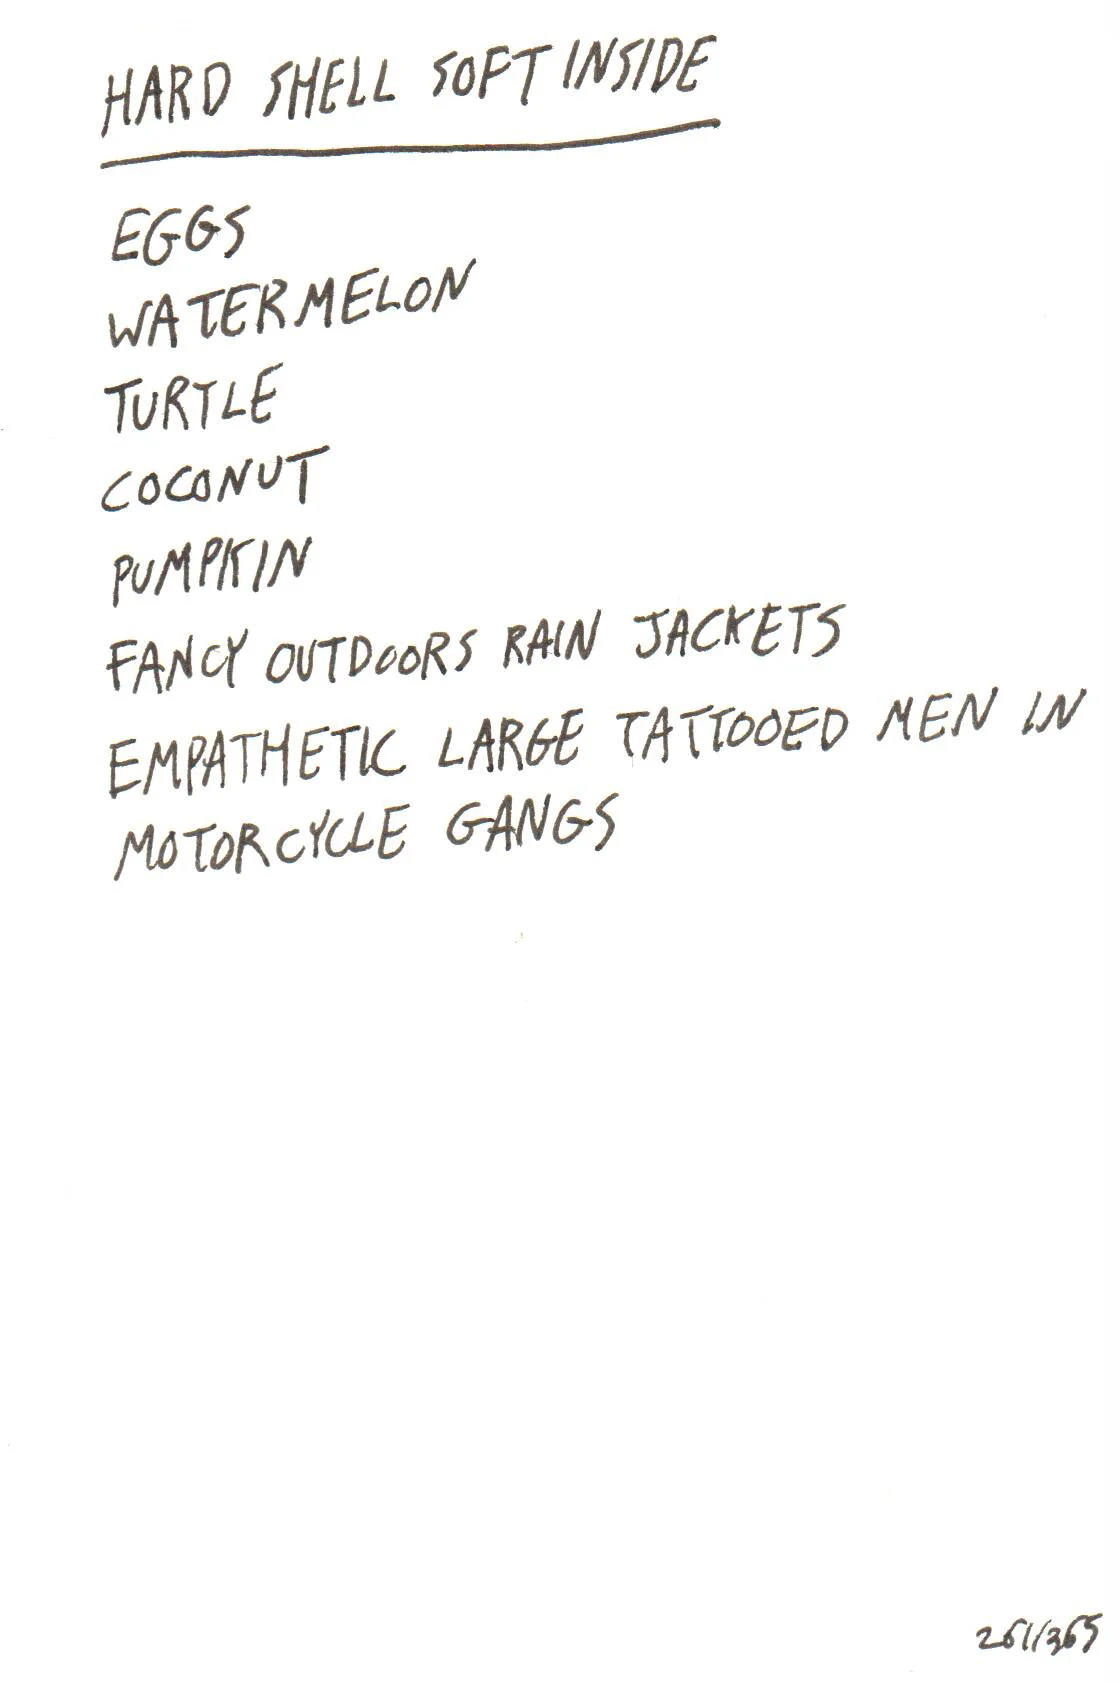 HARD SHELL SOFT INSIDE
EGGS
WATERMELON
TURTLE
COCONUT
PUMPKIN
FANCY OUTDOORS RAIN JACKETS
EMPATHETIC LARGE TATTOOED MEN IN
MOTORCYCLE GANGS
261/365